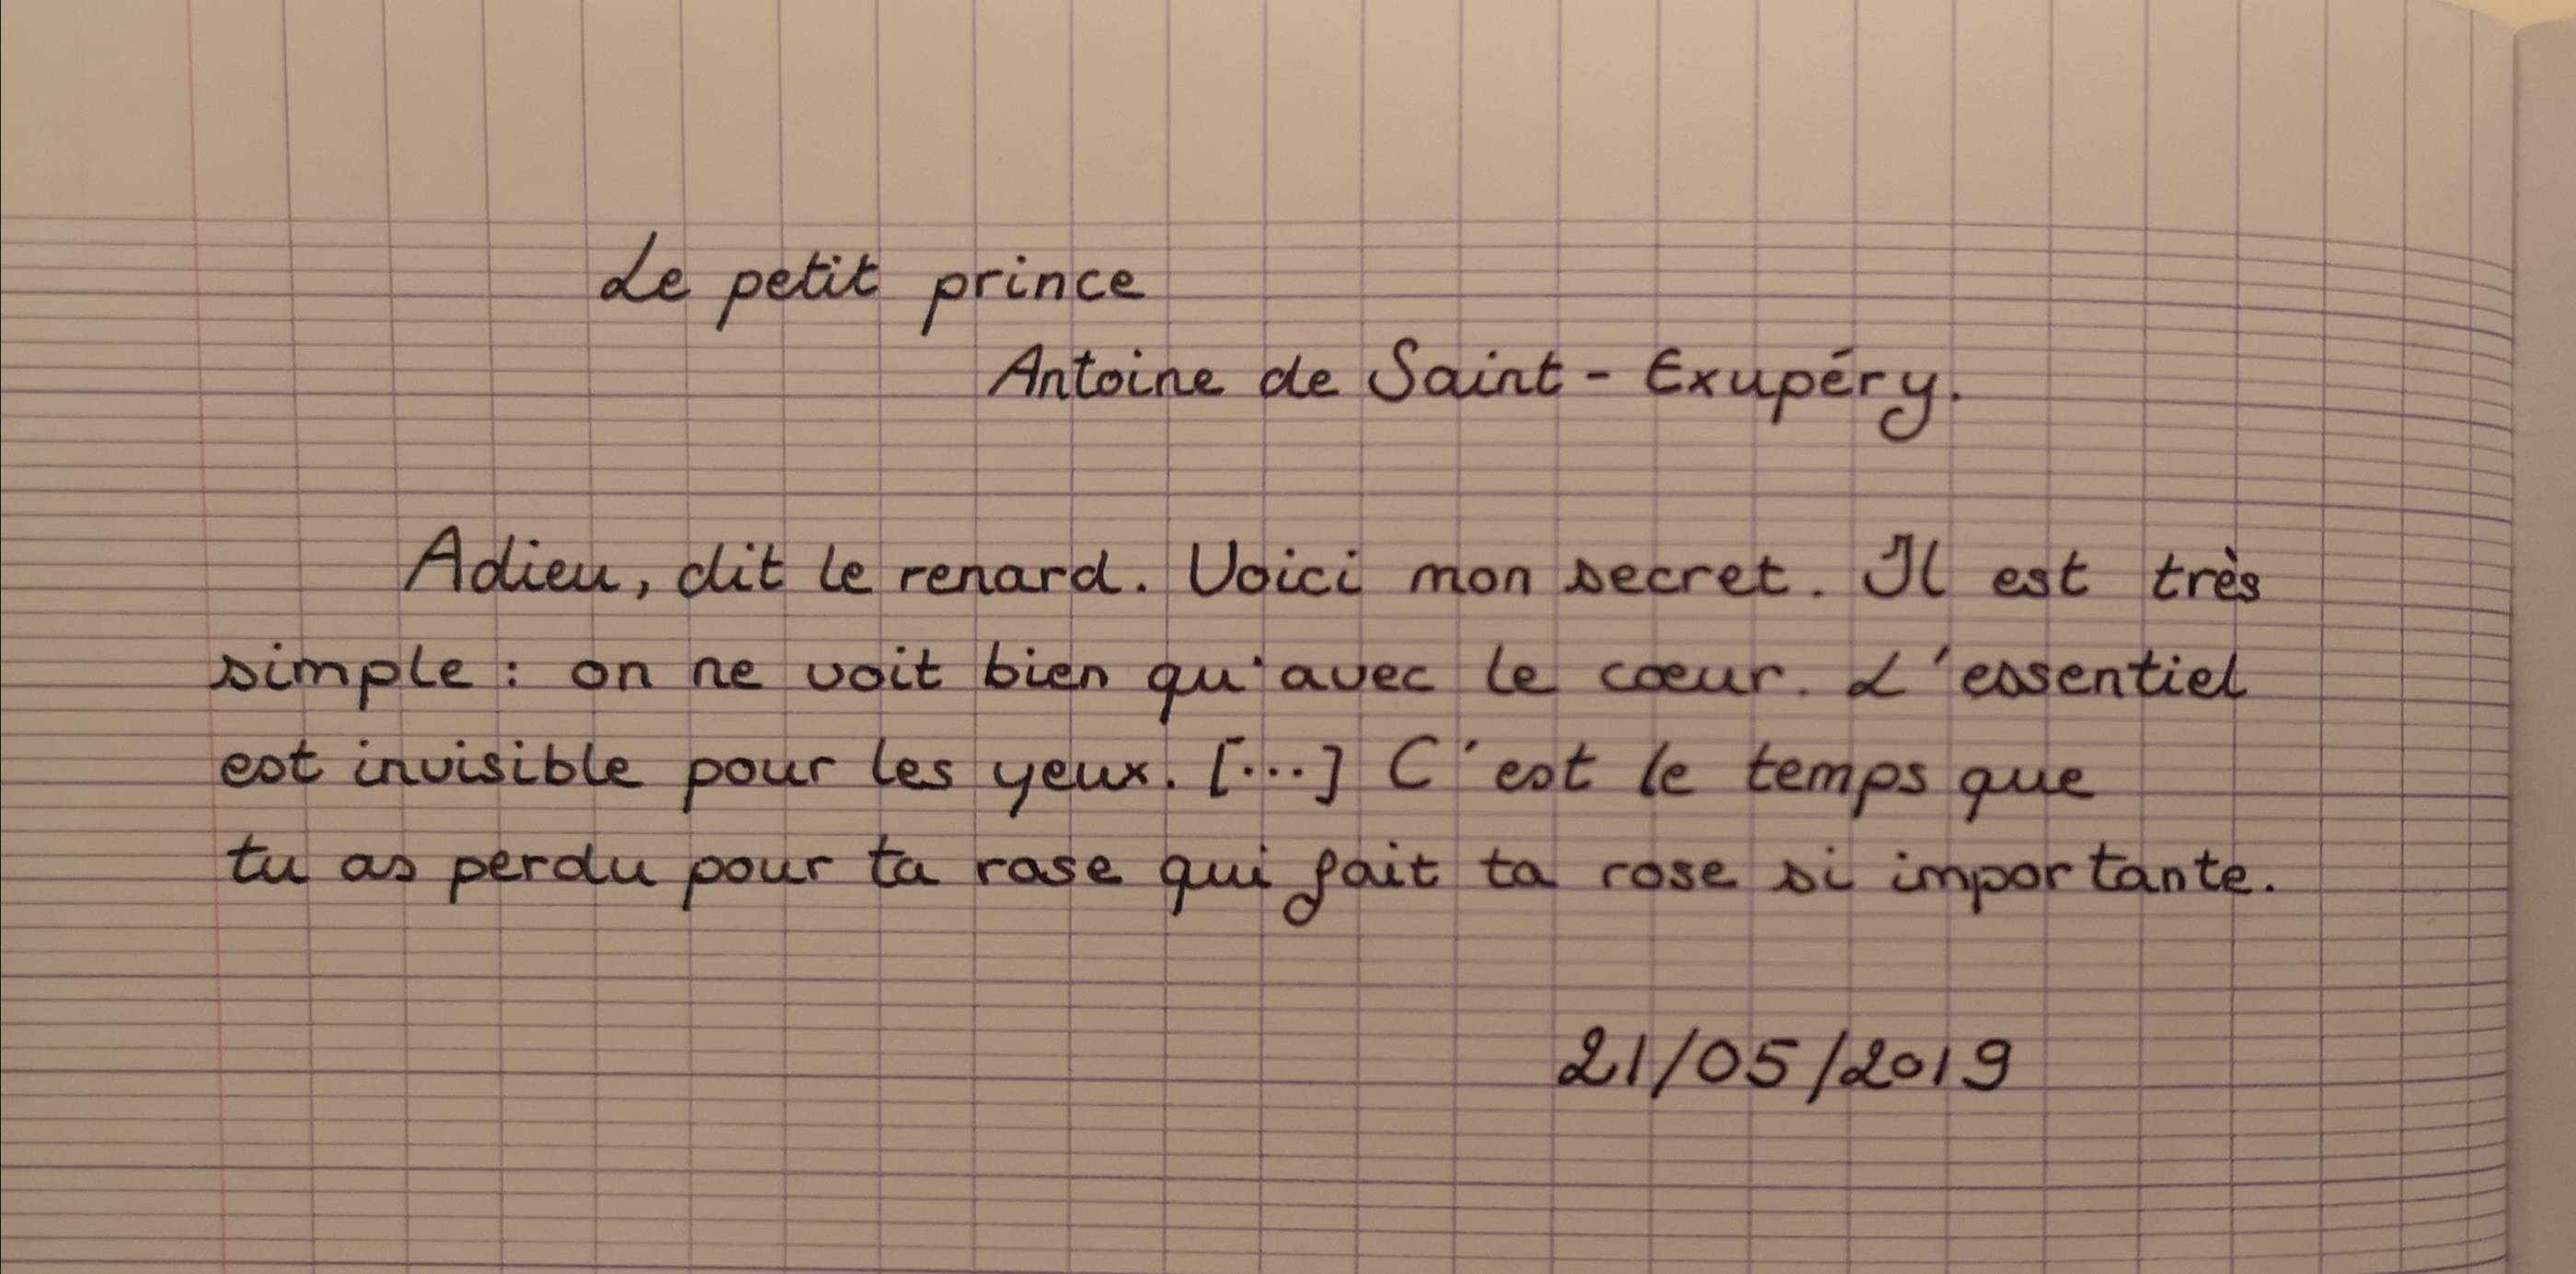 Le petit prince
Antoine de Saint-Exupéry.
Adieu, dit le renard. Voici mon secret. Il est très
simple : on ne voit bien qu'avec le cœur. L'essentiel
est invisible pour les yeux. [...] C'est le temps que
tu as perdu pour ta rose qui fait ta rose si importante.
21/05/2019